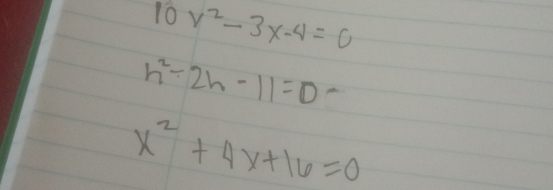 10 v² - 3x - 4 = 0
h² - 2h - 11 = 0 -
x² + 4x + 16 = 0